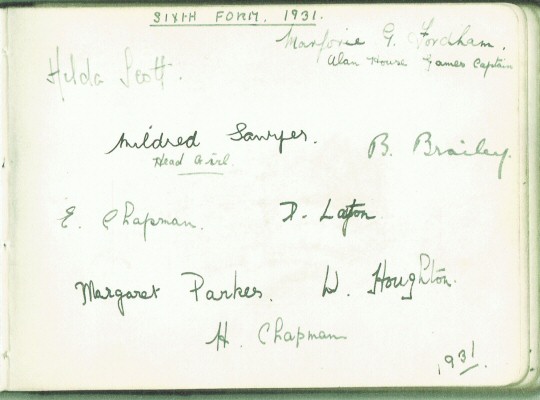 SIXTH FORM. 1931.
Marjorie G. Fordham.
Alan House Games Captain
Hilda Scott.
Mildred Sawyer.
Head Girl.
B. Brailey.
E. Chapman.
D. Layton.
Margaret Parkes.
W. Houghton.
H. Chapman
1931.